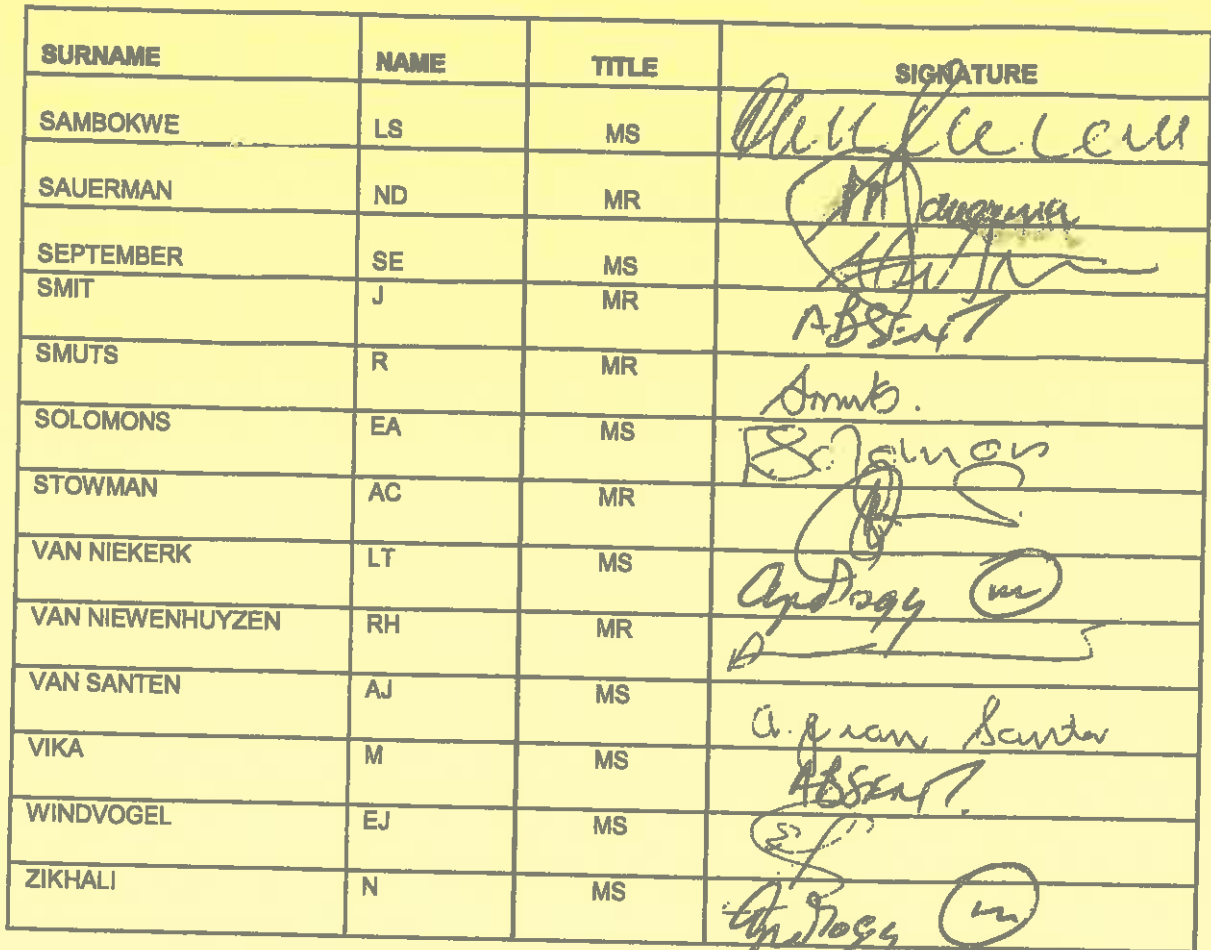 SURNAME NAME TITLE SIGNATURE
SAMBOKWE LS MS
SAUERMAN ND MR
SEPTEMBER SE MS
SMIT J MR ABSENT
SMUTS R MR Smuts.
SOLOMONS EA MS Solomons
STOWMAN AC MR
VAN NIEKERK LT MS Apology
VAN NIEWENHUYZEN RH MR
VAN SANTEN AJ MS A.J van Santen
VIKA M MS ABSENT.
WINDVOGEL EJ MS
ZIKHALI N MS Apology